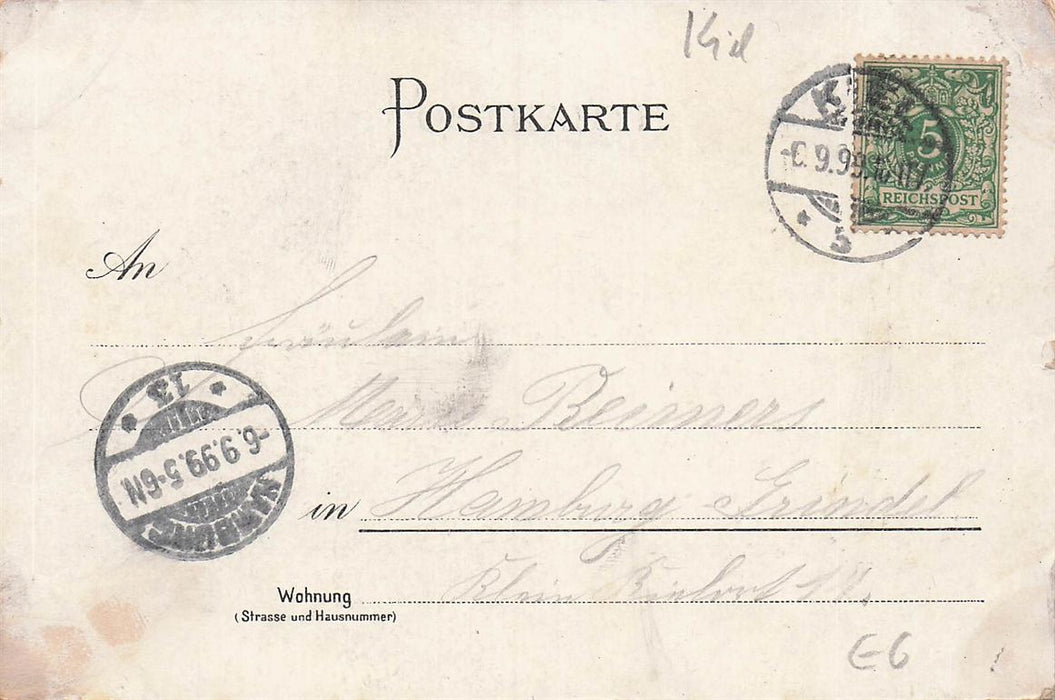 Kiel
POSTKARTE
KIEL
-6.9.99.
5
5
REICHSPOST
An
Fräulein
Reimers
13
-6.9.99.5-6N
HAMBURG
in Hamburg Grindel
Wohnung Klein Kielort 17.
(Strasse und Hausnummer)
E6